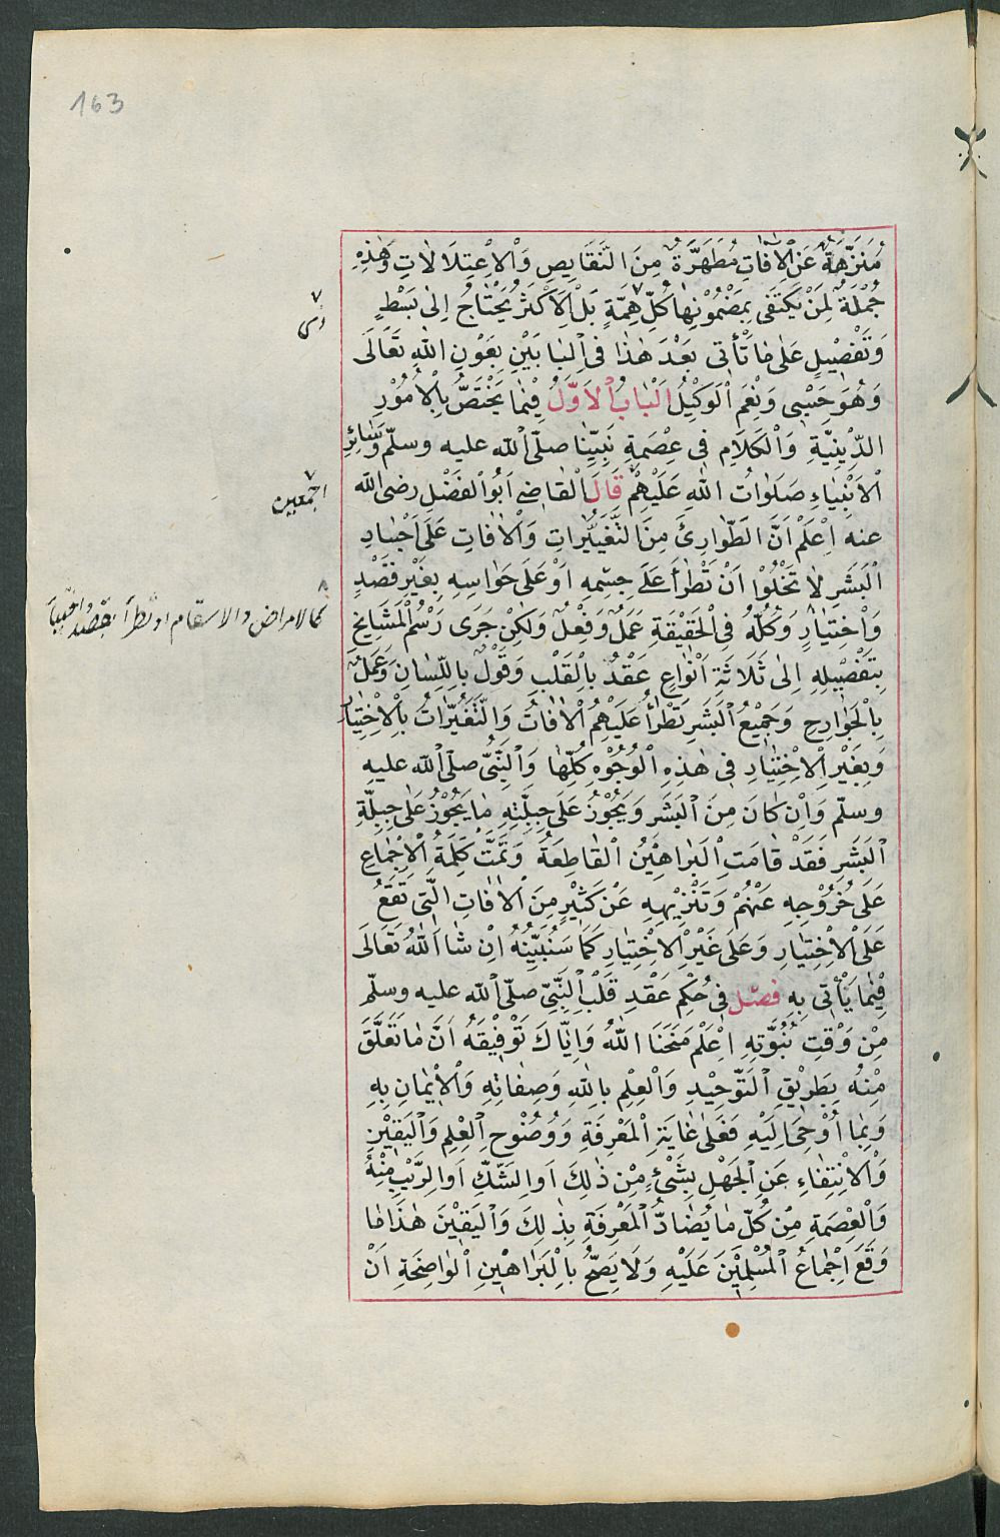 163
مُنَزَّهَةٌ عَنِ الْاٰفَاتِ مُطَهَّرَةٌ مِنَ النَّقَايِصِ وَالْاِعْتِلَالَاتِ وَهٰذِهِ
جُمْلَةٌ لَنْ يَكْتَفٰى بِمَضْمُوْنِهَا كُلُّ هِمَّةٍ بَلِ الْاَكْثَرُ يَحْتَاجُ اِلٰى بَسْطٍ
وَتَفْصِيْلٍ عَلٰى مَا تَأْتِى بَعْدَ هٰذَا فِى الْبَابَيْنِ بِعَوْنِ اللّٰهِ تَعَالٰى
وَهُوَ حَسْبِى وَنِعْمَ الْوَكِيْلُ اَلْبَابُ الْاَوَّلُ فِيْمَا يَخْتَصُّ بِالْاُمُوْرِ
الدِّيْنِيَّةِ وَالْكَلَامِ فِى عِصْمَةِ نَبِيِّنَا صلّى اللّٰه عليه وسلّم وَسَائِرِ
الْاَنْبِيَاءِ صَلَوَاتُ اللّٰهِ عَلَيْهِمْ قَالَ الْقَاضِى اَبُو الْفَضْلِ رضى اللّٰه
اجمعين
عنه اِعْلَمْ اَنَّ الطَّوَارِئَ مِنَ التَّغَيُّرَاتِ وَالْاٰفَاتِ عَلٰى اَجْسَادِ
الْبَشَرِ لَا تَخْلُوْا اَنْ تَطْرَأَ عَلٰى جِسْمِهِ اَوْ عَلٰى حَوَاسِهِ بِغَيْرِ قَصْدٍ
كالامراض والاسقام او تطرأ
وَاخْتِيَارٍ وَكُلُّهُ فِى الْحَقِيْقَةِ عَمَلٌ وَفِعْلٌ وَلٰكِنْ جَرٰى رَسْمُ الْمَشَايِخِ
بِتَفْصِيْلِهِ اِلٰى ثَلَاثَةِ اَنْوَاعٍ عَقْدٌ بِالْقَلْبِ وَقَوْلٌ بِاللِّسَانِ وَعَمَلٌ
بِالْجَوَارِحِ وَجَمِيْعُ الْبَشَرِ تَطْرَأُ عَلَيْهِمُ الْاٰفَاتُ وَالتَّغَيُّرَاتُ بِالْاِخْتِيَارِ
وَبِغَيْرِ الْاِخْتِيَارِ فِى هٰذِهِ الْوُجُوْهِ كُلِّهَا وَالنَّبِىُّ صلّى اللّٰه عليه
وسلّم وَاِنْ كَانَ مِنَ الْبَشَرِ وَيَجُوْزُ عَلٰى جِبِلَّتِهِ مَا يَجُوْزُ عَلٰى جِبِلَّةِ
الْبَشَرِ فَقَدْ قَامَتِ الْبَرَاهِيْنُ الْقَاطِعَةُ وَتَمَّتْ كَلِمَةُ الْاِجْمَاعِ
عَلٰى خُرُوْجِهِ عَنْهُمْ وَتَنْزِيْهِهِ عَنْ كَثِيْرٍ مِنَ الْاٰفَاتِ الَّتِى تَقَعُ
عَلَى الْاِخْتِيَارِ وَعَلٰى غَيْرِ الْاِخْتِيَارِ كَمَا سَنُبَيِّنُهُ اِنْ شَا اللّٰهُ تَعَالٰى
فِيْمَا يَأْتِى بِهِ فصْل فِى حُكْمِ عَقْدِ قَلْبِ النَّبِىِّ صلّى اللّٰه عليه وسلّم
مِنْ وَقْتِ نُبُوَّتِهِ اِعْلَمْ مَنَحَنَا اللّٰهُ وَاِيَّاكَ تَوْفِيْقَهُ اَنَّ مَا تَعَلَّقَ
مِنْهُ بِطَرِيْقِ التَّوْحِيْدِ وَالْعِلْمِ بِاللّٰهِ وَصِفَاتِهِ وَالْاِيْمَانِ بِهِ
وَبِمَا اُوْحِىَ اِلَيْهِ فَعَلٰى غَايَةِ الْمَعْرِفَةِ وَوُضُوْحِ الْعِلْمِ وَالْيَقِيْنِ
وَالْاِنْتِفَاءِ عَنِ الْجَهْلِ بِشَىْءٍ مِنْ ذٰلِكَ اَوِ الشَّكِّ اَوِ الرَّيْبِ مِنْهُ
وَالْعِصْمَةِ مِنْ كُلِّ مَا يُضَادُّ الْمَعْرِفَةِ بِذٰلِكَ وَالْيَقِيْنَ هٰذَا مَا
وَقَعَ اِجْمَاعُ الْمُسْلِمِيْنَ عَلَيْهِ وَلَا يَصِحُّ بِالْبَرَاهِيْنِ الْوَاضِحَةِ اَنْ